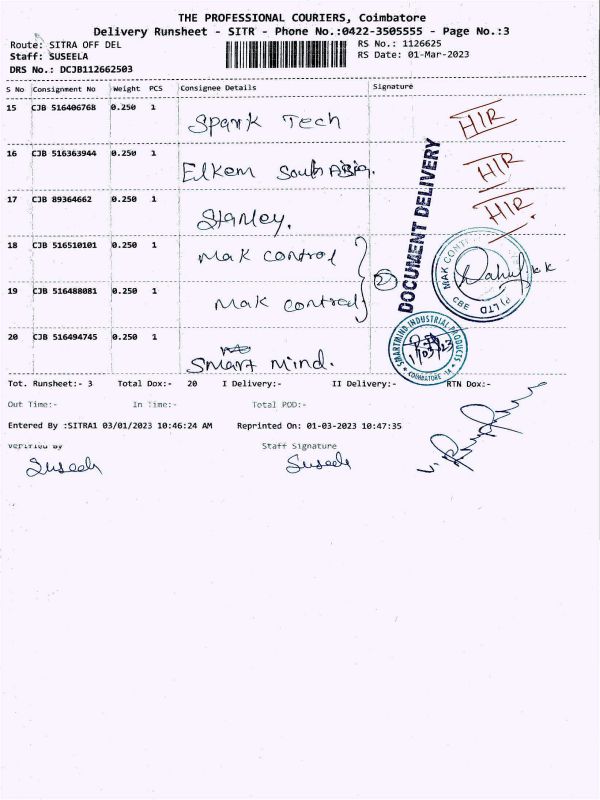 THE PROFESSIONAL COURIERS, Coimbatore
Delivery Runsheet - SITR - Phone No.:0422-3505555 - Page No.:3
Route: SITRA OFF DEL
RS No.: 1126625
Staff: SUSEELA
RS Date: 01-Mar-2023
DRS No.: DCJB112662503
S No Consignment No Weight PCS Consignee Details Signature
15 CJB 516406768 0.250 1 Spark Tech HIR
16 CJB 516363944 0.250 1 Elkem South Asia. HIR
17 CJB 89364662 0.250 1 Stanley. HIR
18 CJB 516510101 0.250 1 Mak control
19 CJB 516488081 0.250 1 Mak control
2
DOCUMENT DELIVERY
MAK CONT
(P) LTD
CBE
20 CJB 516494745 0.250 1 Smart Mind.
SMARTMIND INDUSTRIAL PRODUCTS
COIMBATORE - 14
1/03/23
Tot. Runsheet:- 3 Total Dox:- 20 I Delivery:- II Delivery:- RTN Dox:-
Out Time:- In Time:- Total POD:-
Entered By :SITRA1 03/01/2023 10:46:24 AM Reprinted On: 01-03-2023 10:47:35
Verified By Staff Signature
Suseela Suseela